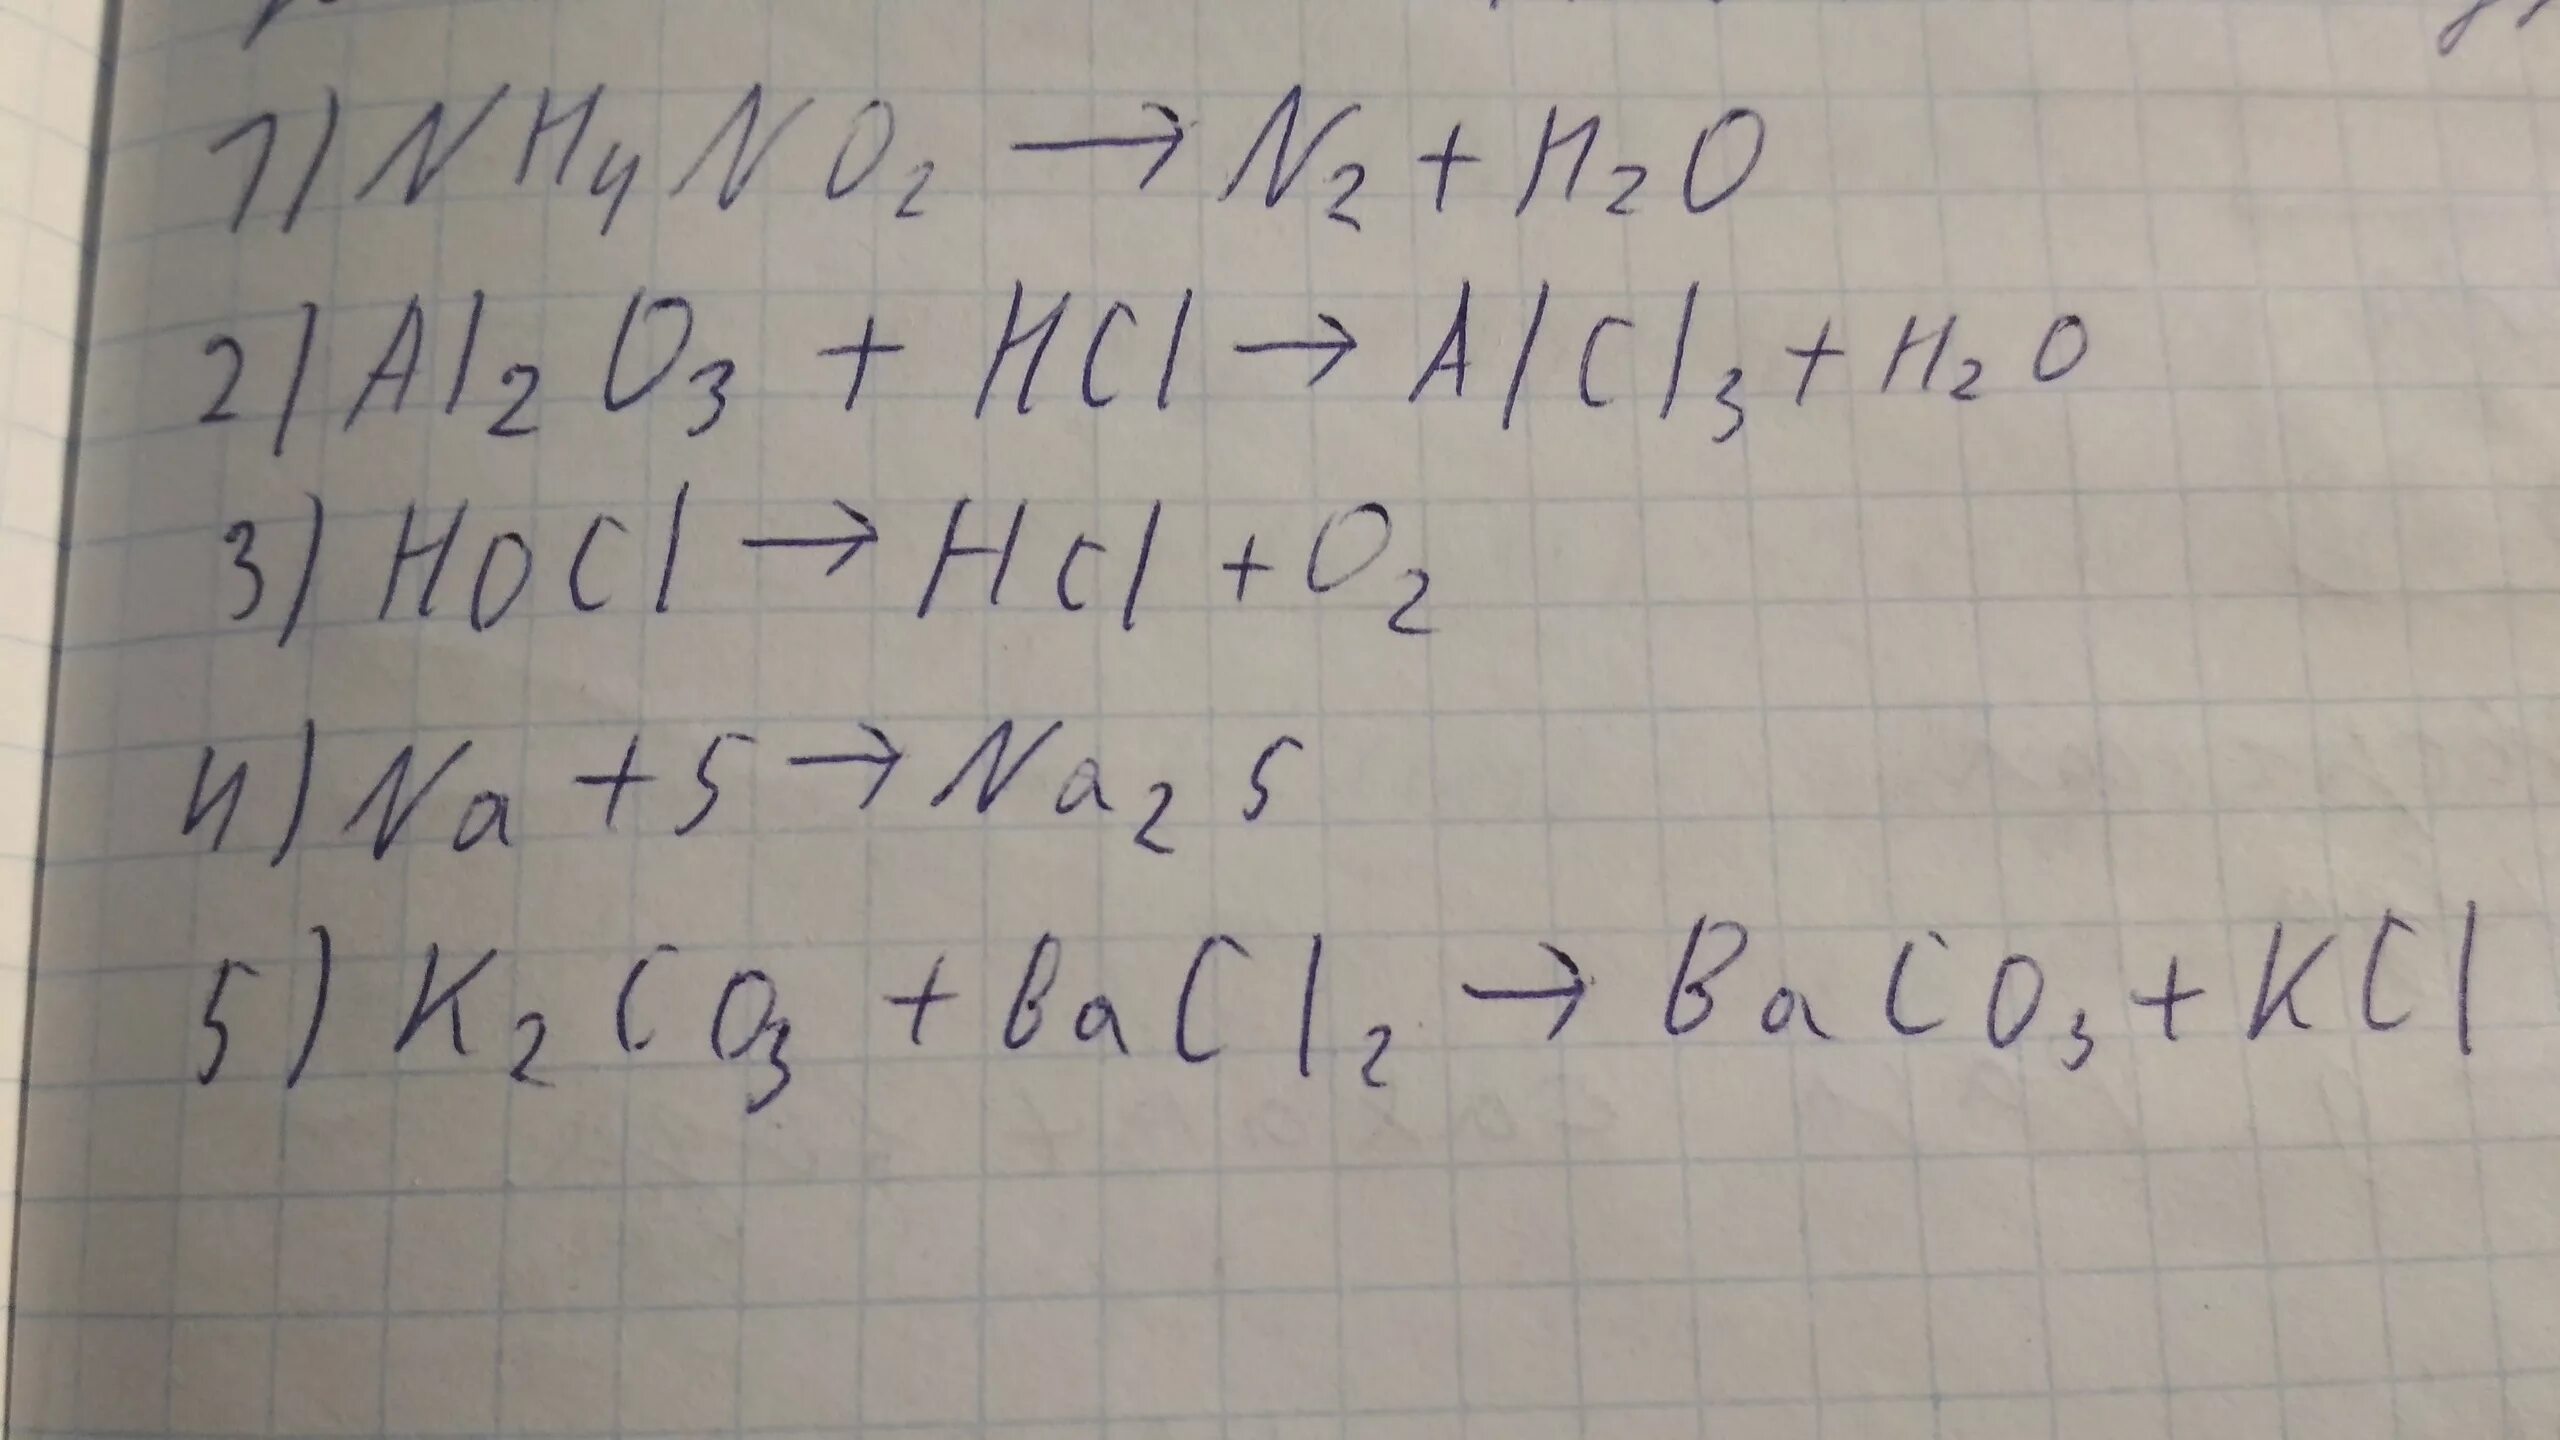 1) NH₄NO₂ → N₂ + H₂O
2) Al₂O₃ + HCl → AlCl₃ + H₂O
3) HOCl → HCl + O₂
4) Na + S → Na₂S
5) K₂CO₃ + BaCl₂ → BaCO₃ + KCl